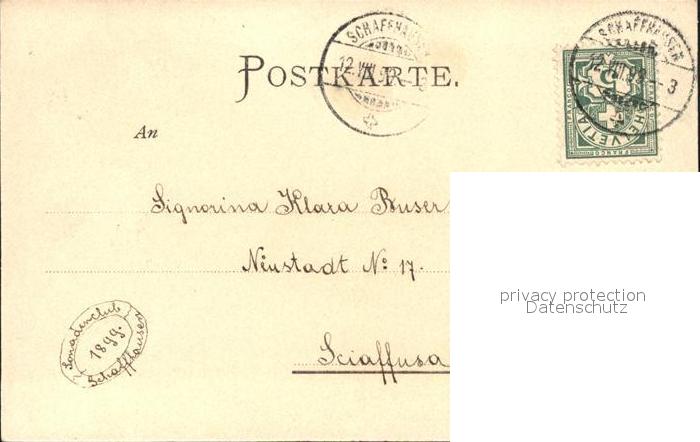 SCHAFFHAUSEN
12.VIII.99
POSTKARTE.
SCHAFFHAUSEN
12.VIII.99
3
HELVETIA
FRANCO
An
Signorina Klara Buser
Neustadt No 17.
Sciaffusa
1899.
Schaffhausen
privacy protection
Datenschutz